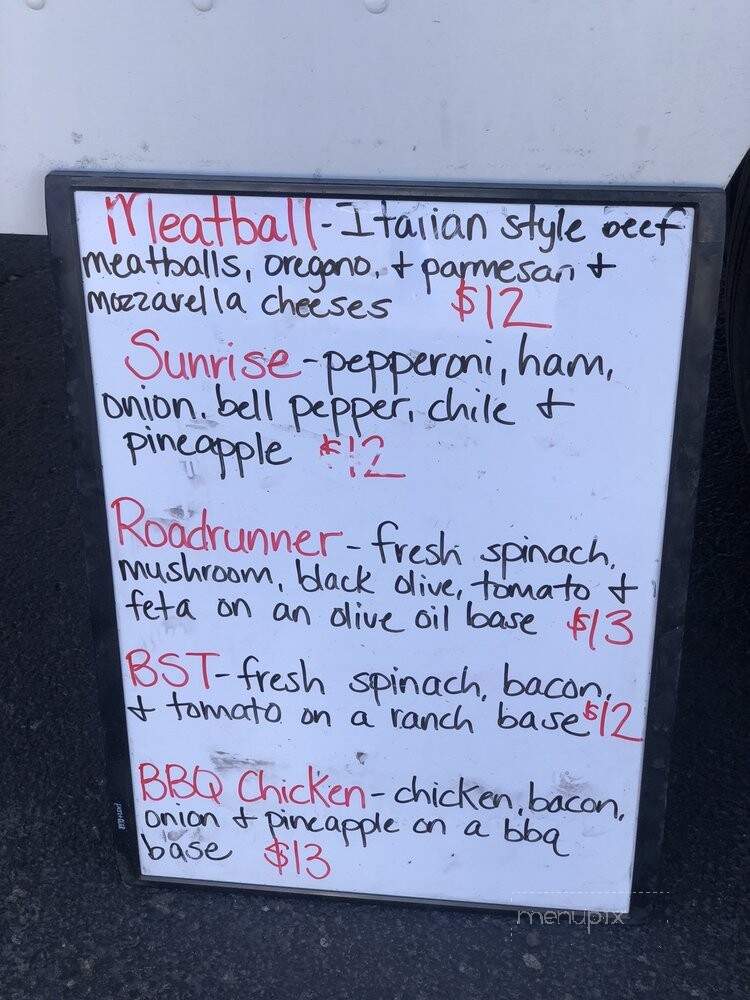 Meatball - Italian style beef
meatballs, oregano, + parmesan +
mozzarella cheeses $12
Sunrise - pepperoni, ham,
onion, bell pepper, chile +
pineapple $12
Roadrunner - fresh spinach,
mushroom, black olive, tomato +
feta on an olive oil base $13
BST - fresh spinach, bacon,
+ tomato on a ranch base $12
BBQ Chicken - chicken, bacon,
onion + pineapple on a bbq
base $13
menupix